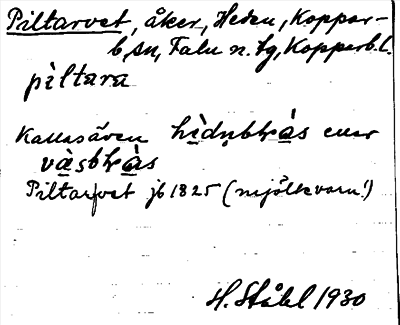 Piltarvet, åker, Heden, Koppar-
b, sn, Falu n. tg, Kopperb. l.
pìltara
Kallas även hìdṇbkràs eller
vàsbkràs
Piltarfvet jb 1825 (mjölkvarn!)
H. Ståhl 1930